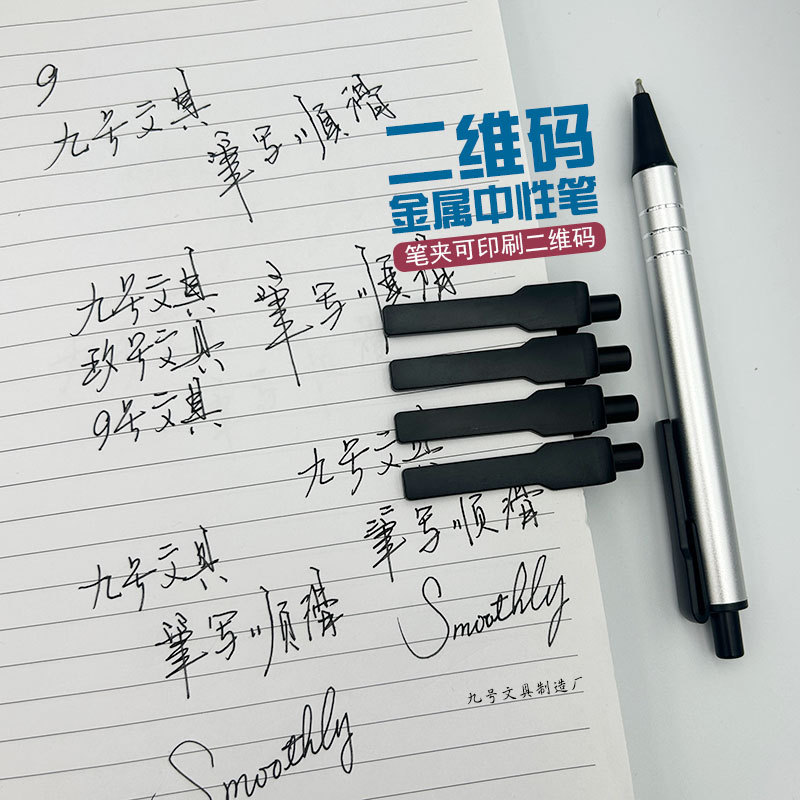 9
九号文具
筆写顺滑
二维码
金属中性笔
笔夹可印刷二维码
九号文具
筆写顺滑
玖号文具
9号文具
九号文具
筆写顺滑
九号文具
筆写顺滑
Smoothly
九号文具制造厂
Smoothly